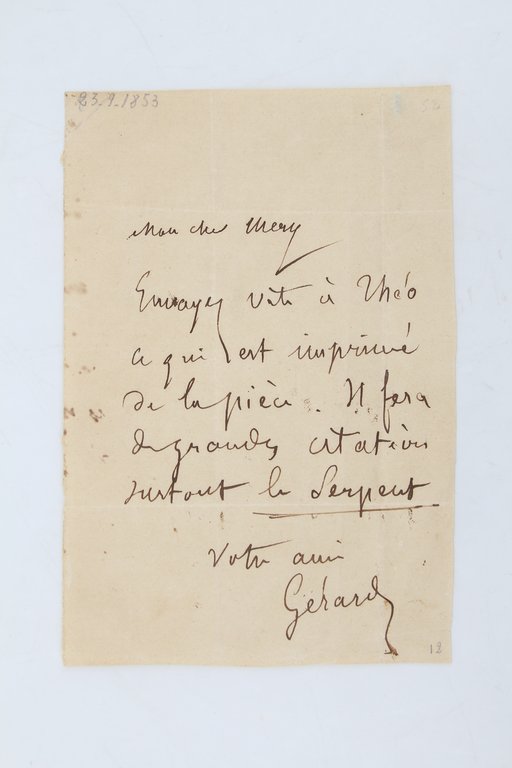 23.9.1853
52
Mon cher Mery
Envoyez vite à Théo
ce qui est imprimé
de la pièce. Il fera
de grandes citations
surtout le Serpent
Votre ami
Gérard
12